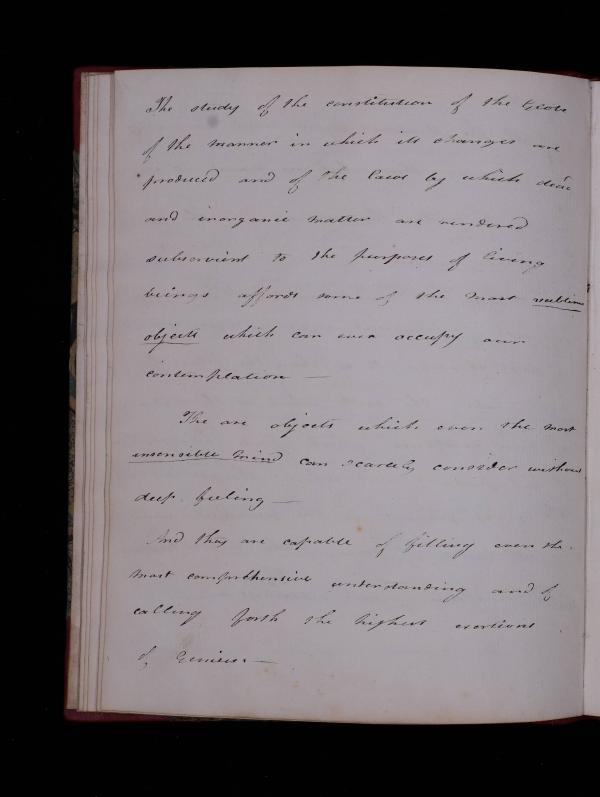 The study of the constitution of the
of the manner in which its changes are
produced and of the laws by which dead
and inorganic matter are rendered
subservient to the purposes of living
beings affords some of the most sublime
objects which can ever occupy our
contemplation —
The are objects which even the most
insensible mind can scarcely consider without
deep feeling —
And they are capable of filling even the
most comprehensive understanding and of
calling forth the highest exertions
of Genius. —